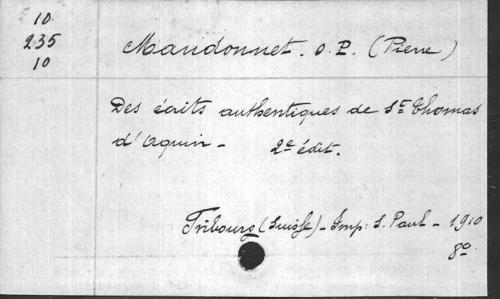 10
235
10
Mandonnet. O. P. (Pierre)
Des écrits authentiques de St Thomas
d'Aquin - 2e édit.
Fribourg (Suisse) - Imp: S. Paul - 1910
8o